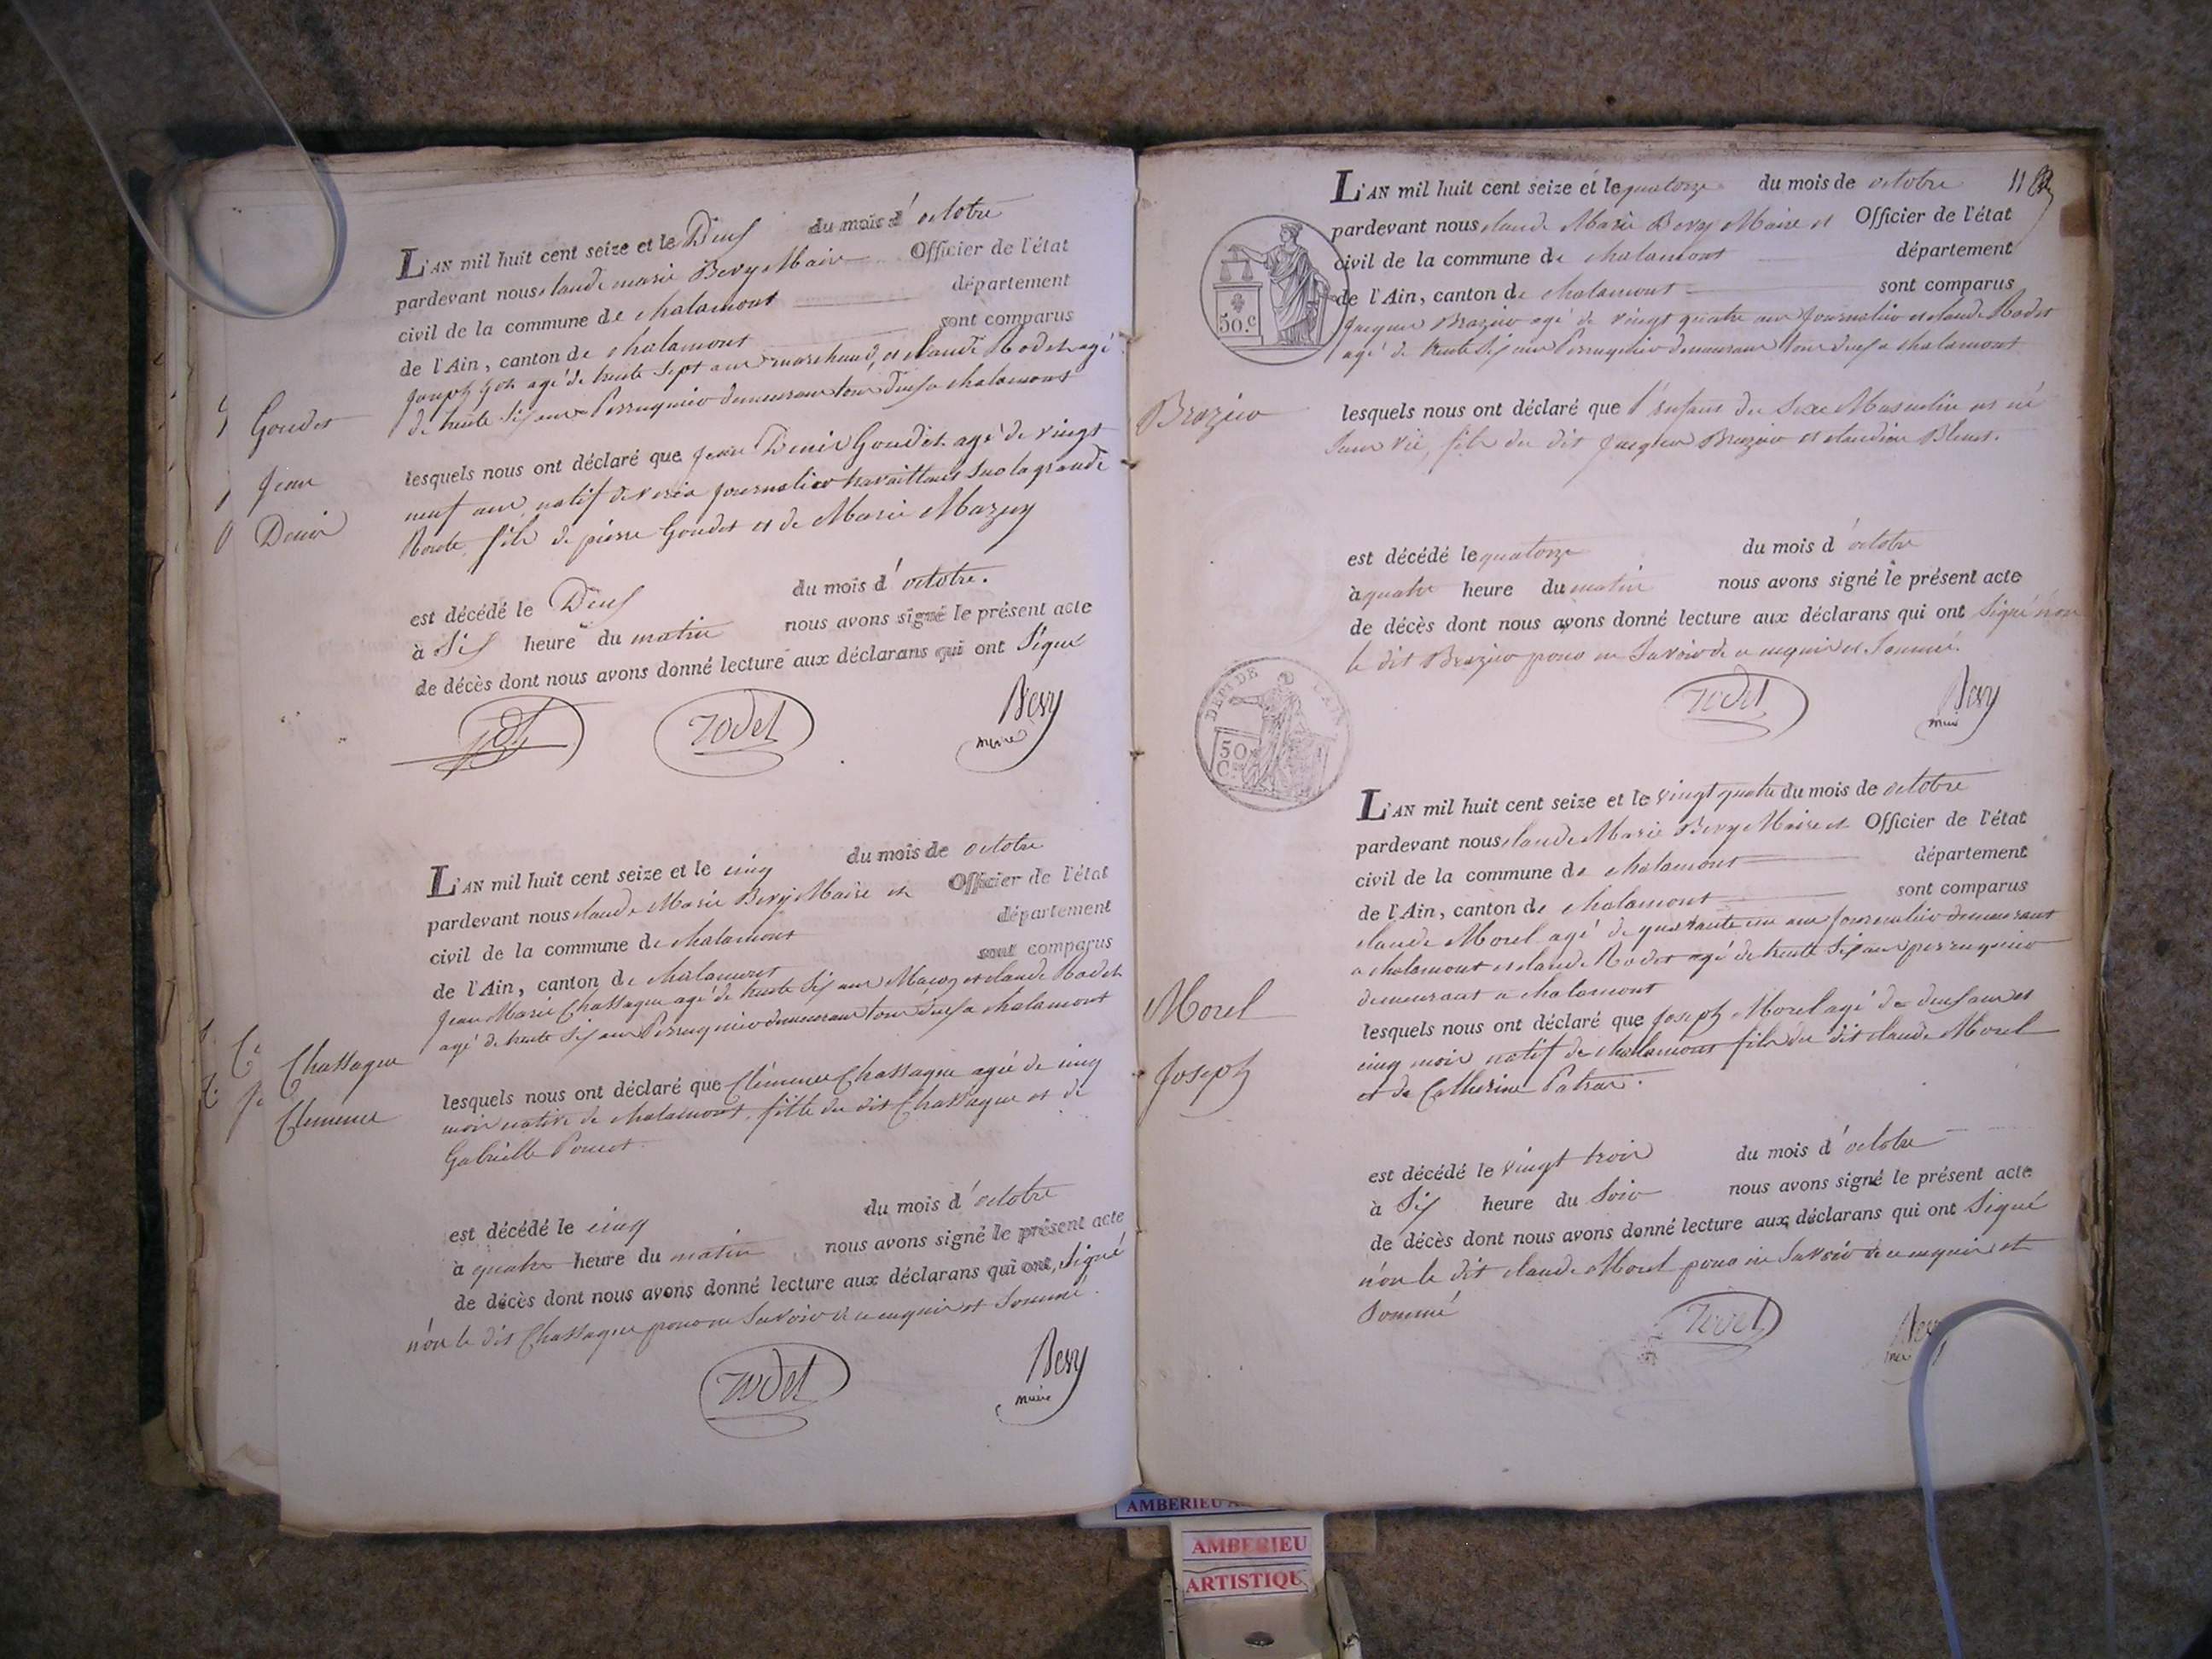 L'AN mil huit cent seize et le Deux du mois d'octobre
pardevant nous claude marie Bevy Maire Officier de l'état
civil de la commune de chalamont département
de l'Ain, canton de chalamont sont comparus
Joseph agé de trente sept ans marchand, et claude Rodet agé
de trente six ans Perruquier demeurant tous deux a chalamont
Goudet
Jean
Denis
lesquels nous ont déclaré que Jean Denis Goudet agé de vingt
neuf ans natif de journalier travaillant sur la grande
Route fils de pierre Goudet et de Marie Mazuy
est décédé le Deux du mois d'octobre.
à Six heure du matin nous avons signé le présent acte
de décès dont nous avons donné lecture aux déclarans qui ont Signé
rodet Bevy
maire
L'AN mil huit cent seize et le cinq du mois de octobre
pardevant nous claude Marie Bevy Maire et Officier de l'état
civil de la commune de chalamont département
de l'Ain, canton de chalamont sont comparus
Jean Marie Chassagne agé de trente six ans Maçon et claude Rodet
agé de trente six ans Perruquier demeurant tous deux a chalamont
Chassagne
Clemence
lesquels nous ont déclaré que Clémence Chassagne agée de cinq
mois native de chalamont, fille du dit Chassagne et de
Gabrielle Poncet
est décédé le cinq du mois d'octobre
à quatre heure du matin nous avons signé le présent acte
de décès dont nous avons donné lecture aux déclarans qui ont, signé
non le dit Chassagne pour ne Savoir de ce enquis et Sommé.
rodet Bevy
maire
L'AN mil huit cent seize et le quatorze du mois de octobre 11
pardevant nous claude Marie Bevy Maire et Officier de l'état
civil de la commune de chalamont département
de l'Ain, canton de chalamont sont comparus
50.c
Jacques Brazier agé de vingt quatre ans Journalier et claude Rodet
agé de trente six ans Perruquier demeurant tous deux a chalamont
Brazier
lesquels nous ont déclaré que l'enfant du Sexe Masculin est né
Sans vie, fils du dit Jacques Brazier et claudine
est décédé le quatorze du mois d'octobre
à quatre heure du matin nous avons signé le présent acte
de décès dont nous avons donné lecture aux déclarans qui ont Signé non
le dit Brazier pour ne Savoir de ce enquis et Sommé.
DEPT DE L'AIN
50
C.
rodet Bevy
maire
L'AN mil huit cent seize et le vingt quatre du mois de octobre
pardevant nous claude Marie Bevy Maire et Officier de l'état
civil de la commune de chalamont département
de l'Ain, canton de chalamont sont comparus
claude Morel agé de quarante un ans journalier demeurant
a chalamont et claude Rodet agé de trente six ans perruquier
demeurant a chalamont
Morel
Joseph
lesquels nous ont déclaré que Joseph Morel agé de deux ans et
cinq mois natif de chalamont fils du dit claude Morel
et de Catherine
est décédé le vingt trois du mois d'octobre
à Six heure du Soir nous avons signé le présent acte
de décès dont nous avons donné lecture aux déclarans qui ont Signé
non le dit claude Morel pour ne Savoir de ce enquis et
Sommé
rodet Bevy
AMBERIEU
AMBERIEU
ARTISTIQU